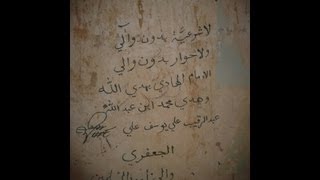 لا شرعية بدون وآلي
ولا حوار بدون والي
الامام الهادي مهدي الله
وعبدي محمد ابن عبد الله
عبد الرقيب علي يوسف علي
الجعفري